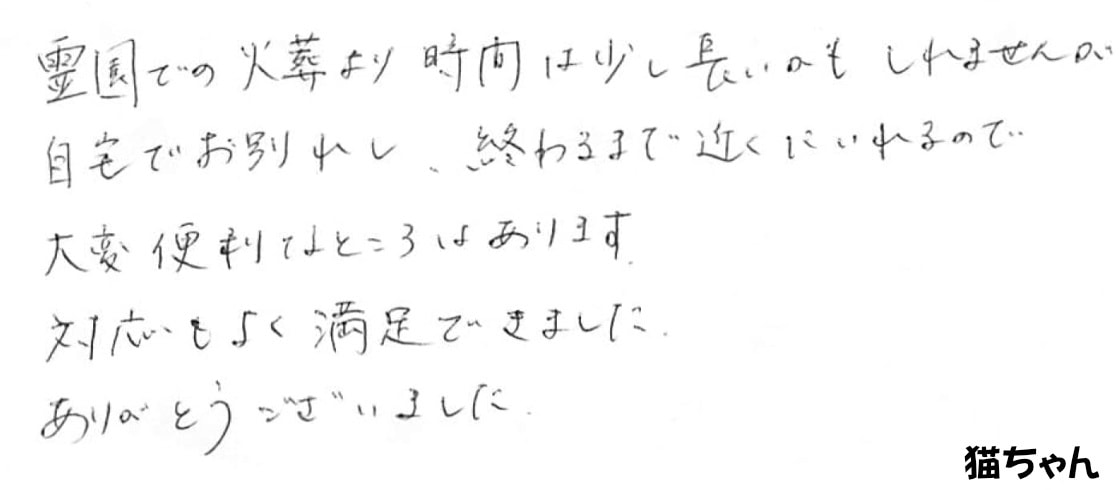 霊園での火葬より時間は少し長いかもしれませんが
自宅でお別れし、終わるまで近くにいれるので
大変便利なところはあります。
対応もよく満足できました。
ありがとうございました。
猫ちゃん